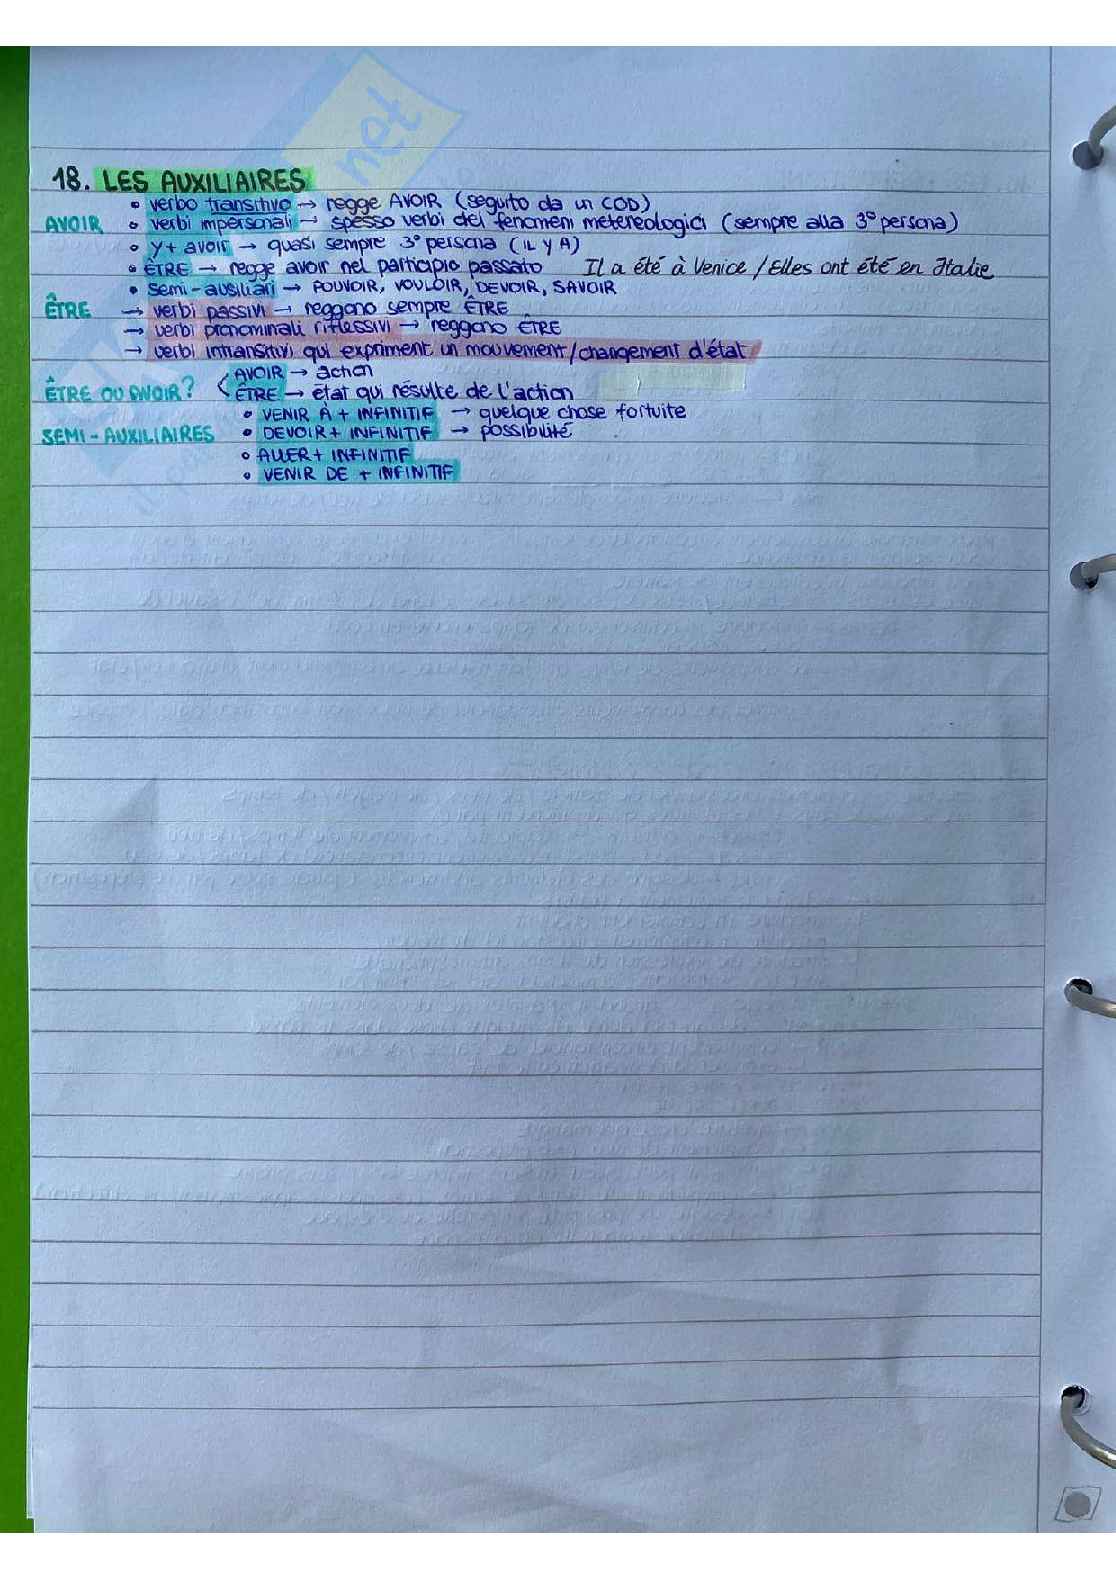 18. LES AUXILIAIRES
• verbo transitivo → regge AVOIR (seguito da un COD)
AVOIR • verbi impersonali → spesso verbi dei fenomeni metereologici (sempre alla 3° persona)
• y + avoir → quasi sempre 3° persona (IL Y A)
• ÊTRE → regge avoir nel participio passato Il a été à Venice / Elles ont été en Italie
• semi-ausiliari → POUVOIR, VOULOIR, DEVOIR, SAVOIR
ÊTRE → verbi passivi → reggono sempre ÊTRE
→ verbi pronominali riflessivi → reggono ÊTRE
→ verbi intransitivi qui expriment un mouvement/changement d'état
AVOIR → action
ÊTRE OU AVOIR? < ÊTRE → état qui résulte de l'action
• VENIR À + INFINITIF → quelque chose fortuite
SEMI-AUXILIAIRES • DEVOIR + INFINITIF → possibilité
• ALLER + INFINITIF
• VENIR DE + INFINITIF
net